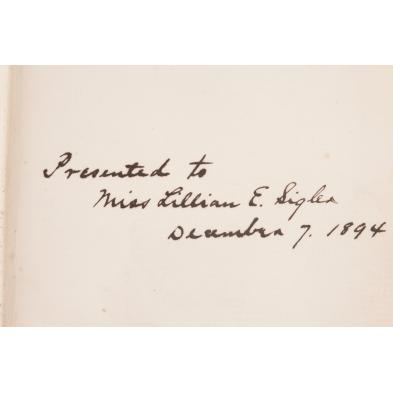 Presented to
Miss Lillian E. Sigler
December 7. 1894